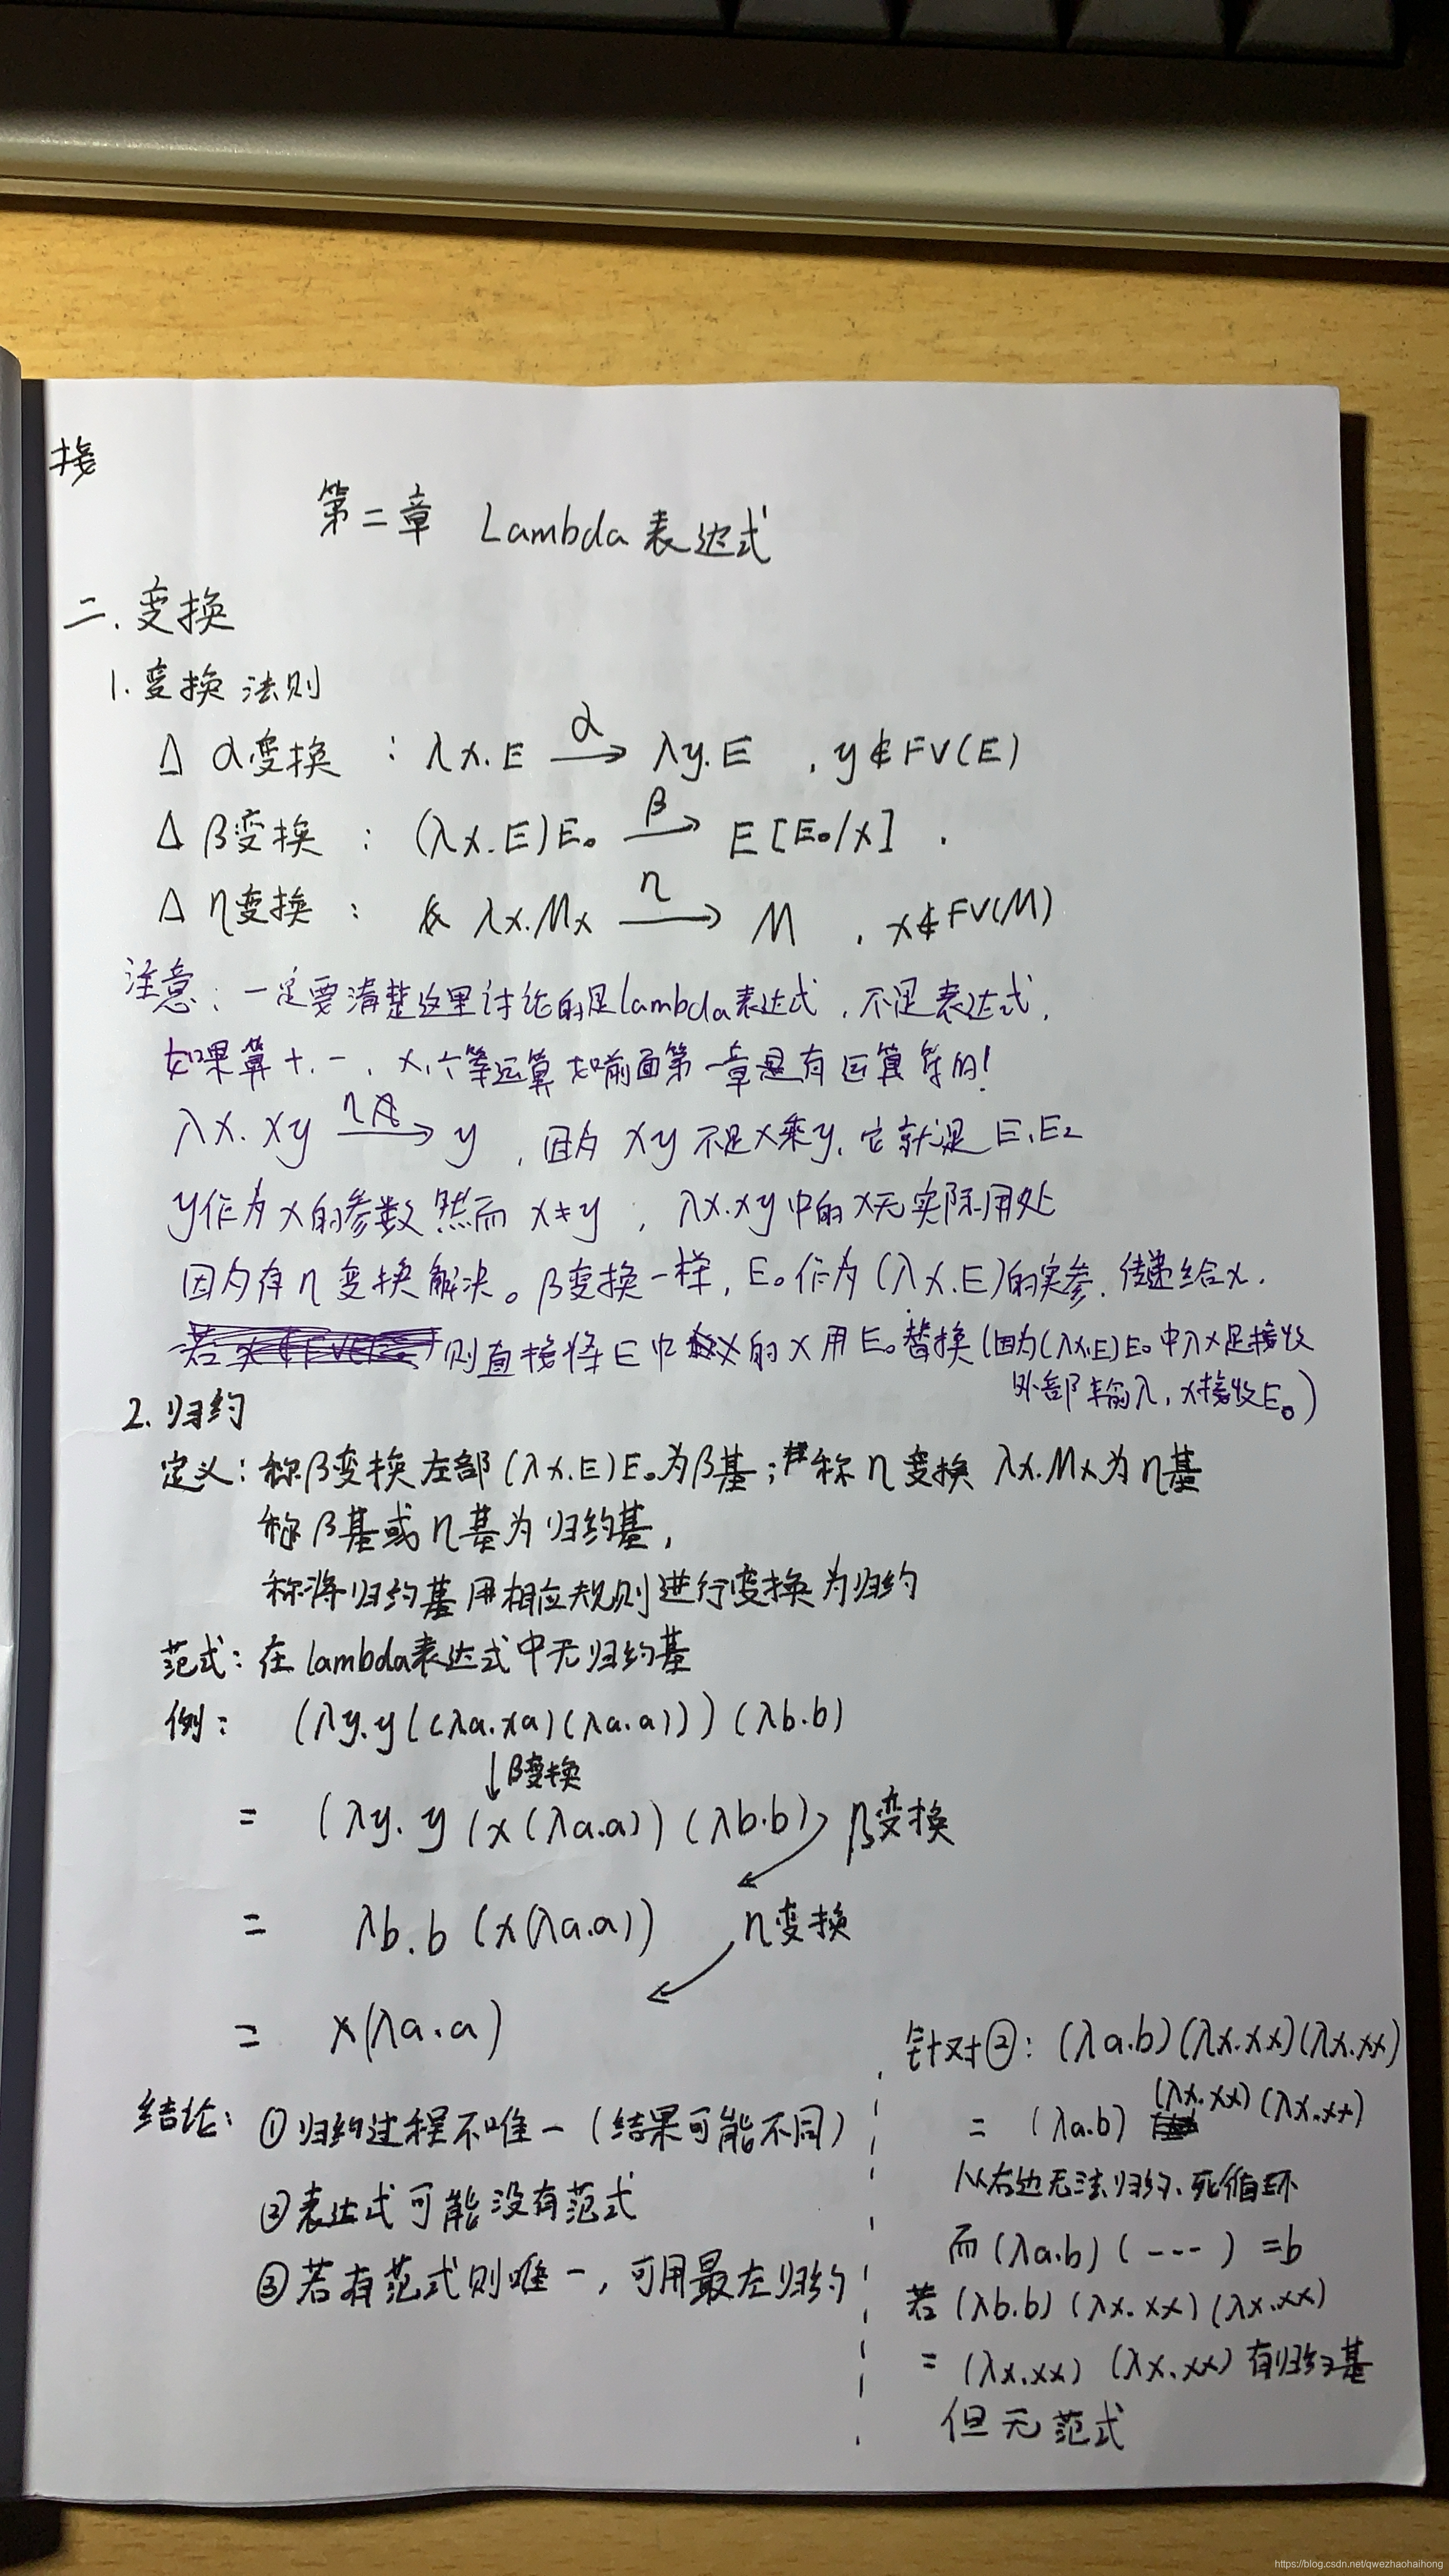 接
第二章 Lambda表达式
二.变换
1.变换法则
Δ α变换 : λx.E —α→ λy.E , y∉FV(E)
Δ β变换 : (λx.E)E₀ —β→ E[E₀/x] .
Δ η变换 : λx.Mx —η→ M , x∉FV(M)
注意:一定要清楚这里讨论的是lambda表达式,不是表达式,
如果算+,-,×,÷等运算 如前面第一章是有运算符的!
λx.xy —η→ y ,因为 xy 不是x乘y,它就是 E₁E₂
y作为x的参数 然而 x≠y , λx.xy中的x无实际用处
因为有η变换解决。β变换一样,E₀作为(λx.E)的实参,传递给x.
则直接将E中的x用E₀替换(因为(λx.E)E₀中λx是接收
外部输入,x接收E₀)
2.归约
定义:称β变换左部(λx.E)E₀为β基;称η变换 λx.Mx为η基
称β基或η基为归约基,
称将归约基用相应规则进行变换为归约
范式:在lambda表达式中无归约基
例: (λy.y((λa.xa)(λa.a)))(λb.b)
↓β变换
= (λy.y(x(λa.a))(λb.b) β变换
= λb.b(x(λa.a)) η变换
= x(λa.a)
结论:①归约过程不唯一(结果可能不同)
②表达式可能没有范式
③若有范式则唯一,可用最左归约
针对②:(λa.b)(λx.xx)(λx.xx)
= (λa.b) (λx.xx)(λx.xx)
从右边无法归约、死循环
而(λa.b)(----)=b
若(λb.b)(λx.xx)(λx.xx)
= (λx.xx)(λx.xx)有归约基
但无范式
https://blog.csdn.net/qwezhaohaihong